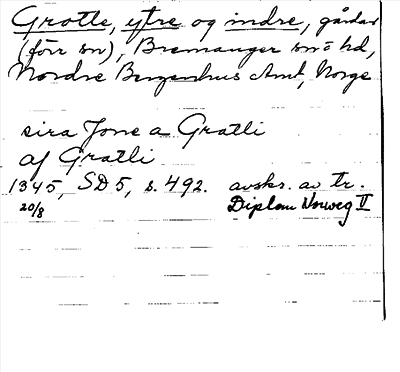 Grotle, ytre og indre, gårdar
(förr sn), Bremanger sn o hd,
Nordre Bergenhus Amt, Norge
sira Jone a Gratli
af Gratli
1345, SD 5, s. 492. avskr. av tr.
20/8 Diplom Norweg II